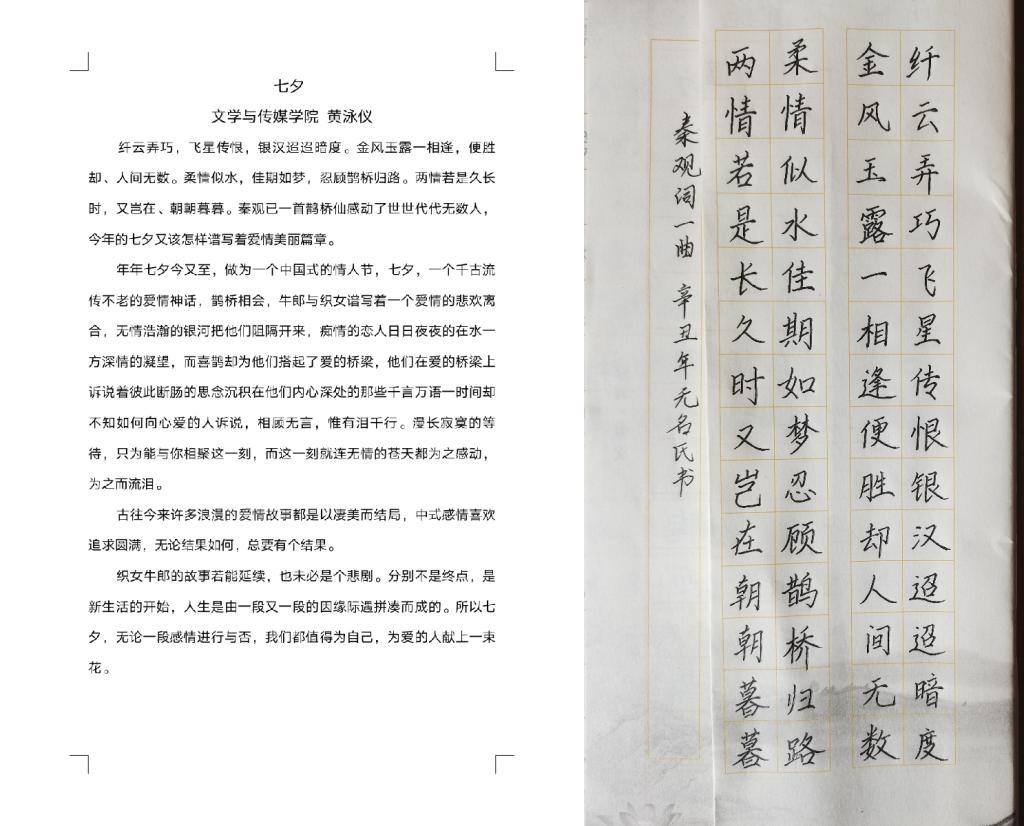 七夕
文学与传媒学院 黄泳仪
纤云弄巧，飞星传恨，银汉迢迢暗度。金风玉露一相逢，便胜
却、人间无数。柔情似水，佳期如梦，忍顾鹊桥归路。两情若是久长
时，又岂在、朝朝暮暮。秦观已一首鹊桥仙感动了世世代代无数人，
今年的七夕又该怎样谱写着爱情美丽篇章。
年年七夕今又至，做为一个中国式的情人节，七夕，一个千古流
传不老的爱情神话，鹊桥相会，牛郎与织女谱写着一个爱情的悲欢离
合，无情浩瀚的银河把他们阻隔开来，痴情的恋人日日夜夜的在水一
方深情的凝望，而喜鹊却为他们搭起了爱的桥梁，他们在爱的桥梁上
诉说着彼此断肠的思念沉积在他们内心深处的那些千言万语一时间却
不知如何向心爱的人诉说，相顾无言，惟有泪千行。漫长寂寞的等
待，只为能与你相聚这一刻，而这一刻就连无情的苍天都为之感动，
为之而流泪。
古往今来许多浪漫的爱情故事都是以凄美而结局，中式感情喜欢
追求圆满，无论结果如何，总要有个结果。
织女牛郎的故事若能延续，也未必是个悲剧。分别不是终点，是
新生活的开始，人生是由一段又一段的因缘际遇拼凑而成的。所以七
夕，无论一段感情进行与否，我们都值得为自己，为爱的人献上一束
花。
纤云弄巧飞星传恨银汉迢迢暗度
金风玉露一相逢便胜却人间无数
柔情似水佳期如梦忍顾鹊桥归路
两情若是长久时又岂在朝朝暮暮
秦观词一曲 辛丑年无名氏书